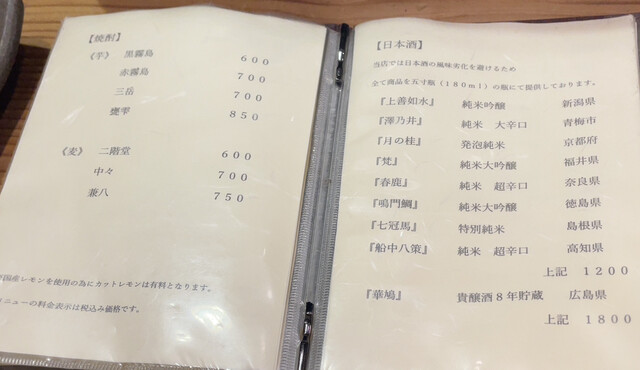 【焼酎】
《芋》 黒霧島 600
赤霧島 700
三岳 700
甕雫 850
《麦》 二階堂 600
中々 700
兼八 750
国産レモンを使用の為にカットレモンは有料となります。
メニューの料金表示は税込み価格です。
【日本酒】
当店では日本酒の風味劣化を避けるため
全て商品を五寸瓶(180ml)の瓶にて提供しております。
『上善如水』 純米吟醸 新潟県
『澤乃井』 純米 大辛口 青梅市
『月の桂』 発泡純米 京都府
『梵』 純米大吟醸 福井県
『春鹿』 純米 超辛口 奈良県
『鳴門鯛』 純米大吟醸 徳島県
『七冠馬』 特別純米 島根県
『船中八策』 純米 超辛口 高知県
上記 1200
『華鳩』 貴醸酒8年貯蔵 広島県
上記 1800